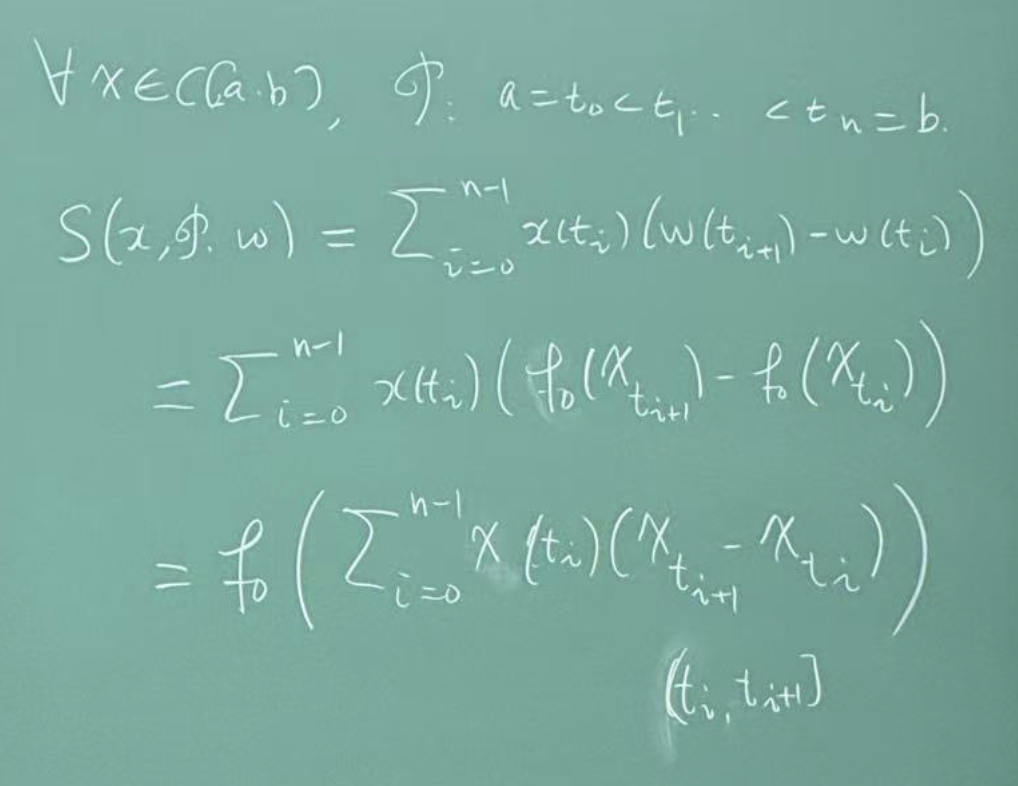 ∀ x ∈ C([a.b]), 𝒫: a = t₀ < t₁ .. < tₙ = b.
S(x, 𝒫. w) = ∑_{i=0}^{n-1} x(t_i)(w(t_{i+1}) - w(t_i))
= ∑_{i=0}^{n-1} x(t_i)(f₀(χ_{t_{i+1}}) - f₀(χ_{t_i}))
= f₀(∑_{i=0}^{n-1} x(t_i)(χ_{t_{i+1}} - χ_{t_i}))
(t_i, t_{i+1}]